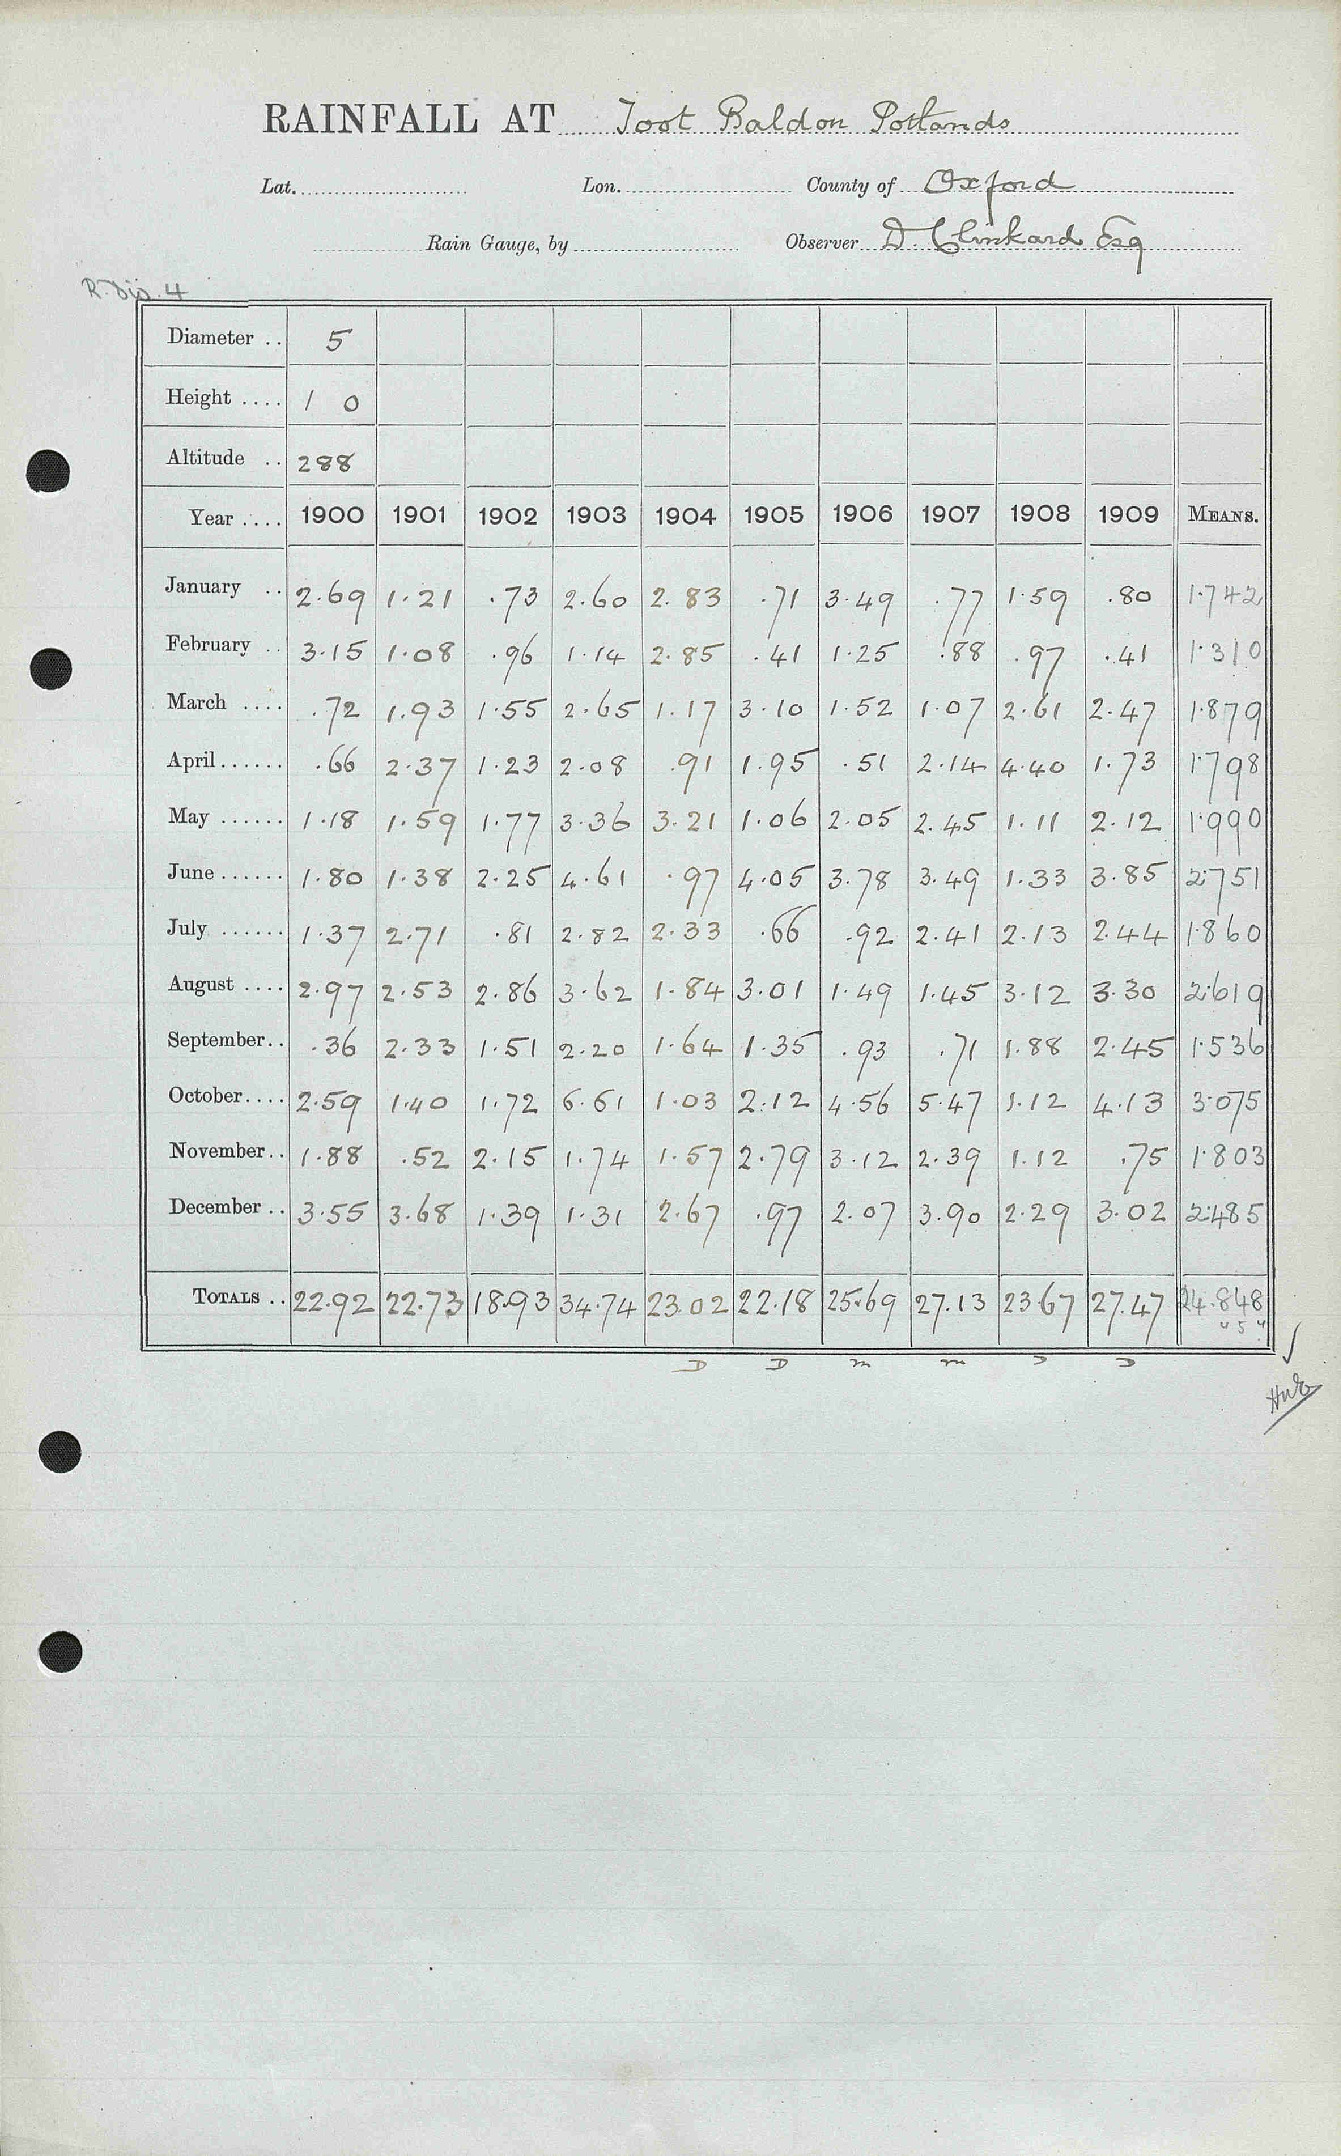 RAINFALL AT Toot Baldon Potlands
Lat. Lon. County of Oxford
Rain Gauge, by Observer D. Clinkard Esq
R. Dis. 4
Diameter .. 5
Height .... 1 0
Altitude .. 288
Year .... 1900 1901 1902 1903 1904 1905 1906 1907 1908 1909 MEANS.
January .. 2.69 1.21 .73 2.60 2.83 .71 3.49 .77 1.59 .80 1.742
February .. 3.15 1.08 .96 1.14 2.85 .41 1.25 .88 .97 .41 1.310
March .... .72 1.93 1.55 2.65 1.17 3.10 1.52 1.07 2.61 2.47 1.879
April...... .66 2.37 1.23 2.08 .91 1.95 .51 2.14 4.40 1.73 1.798
May ...... 1.18 1.59 1.77 3.36 3.21 1.06 2.05 2.45 1.11 2.12 1.990
June...... 1.80 1.38 2.25 4.61 .97 4.05 3.78 3.49 1.33 3.85 2.751
July ...... 1.37 2.71 .81 2.82 2.33 .66 .92 2.41 2.13 2.44 1.860
August .... 2.97 2.53 2.86 3.62 1.84 3.01 1.49 1.45 3.12 3.30 2.619
September.. .36 2.33 1.51 2.20 1.64 1.35 .93 .71 1.88 2.45 1.536
October.... 2.59 1.40 1.72 6.61 1.03 2.12 4.56 5.47 1.12 4.13 3.075
November.. 1.88 .52 2.15 1.74 1.57 2.79 3.12 2.39 1.12 .75 1.803
December .. 3.55 3.68 1.39 1.31 2.67 .97 2.07 3.90 2.29 3.02 2.485
TOTALS .. 22.92 22.73 18.93 34.74 23.02 22.18 25.69 27.13 23.67 27.47 24.848
" 5 "
D D m m D D